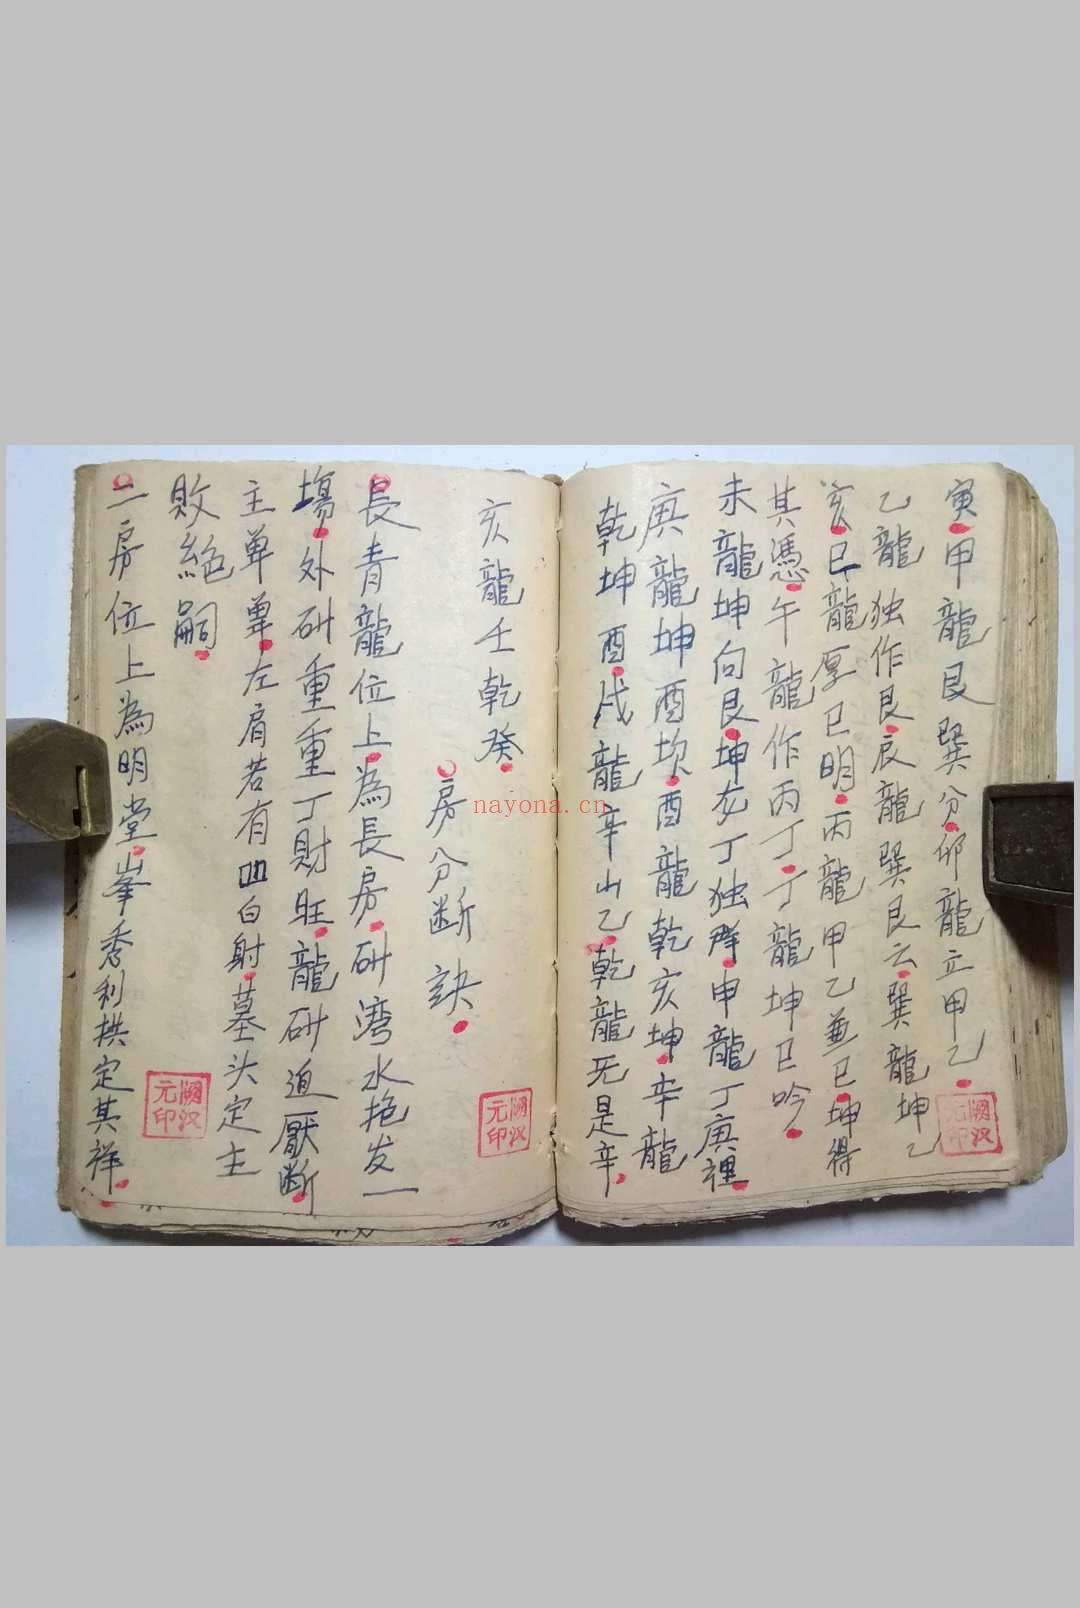 寅甲龍艮巽分卯龍立甲乙
乙龍独作艮辰龍巽艮云巽龍坤乙
亥巳龍厚巳明丙龍甲乙兼巳坤得
其憑午龍作丙丁丁龍坤巳吟
未龍坤向艮坤龙丁独群申龍丁庚裡
庚龍坤酉坎酉龍乾亥坤辛龍
乾坤酉戌龍辛山乙乾龍旡是辛
亥龍壬乾癸
房分断訣
長青龍位上為長房砂湾水抱发一
場外砂重重丁財旺龍砂迫壓断
主单单左肩若有凹白射墓头定主
敗絕嗣
二房位上為明堂峯秀利拱定其祥
闕汉元印
闕汉元印
闕汉元印
nayona.cn